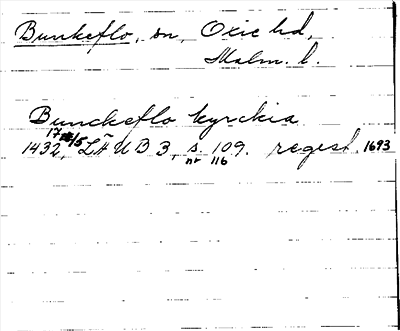 Bunkeflo, sn, Oxie hd,
Malm. l.
Bunckeflo kyrckia
17/5
1432, LÄUB 3, s. 109. regest 1693
nr 116